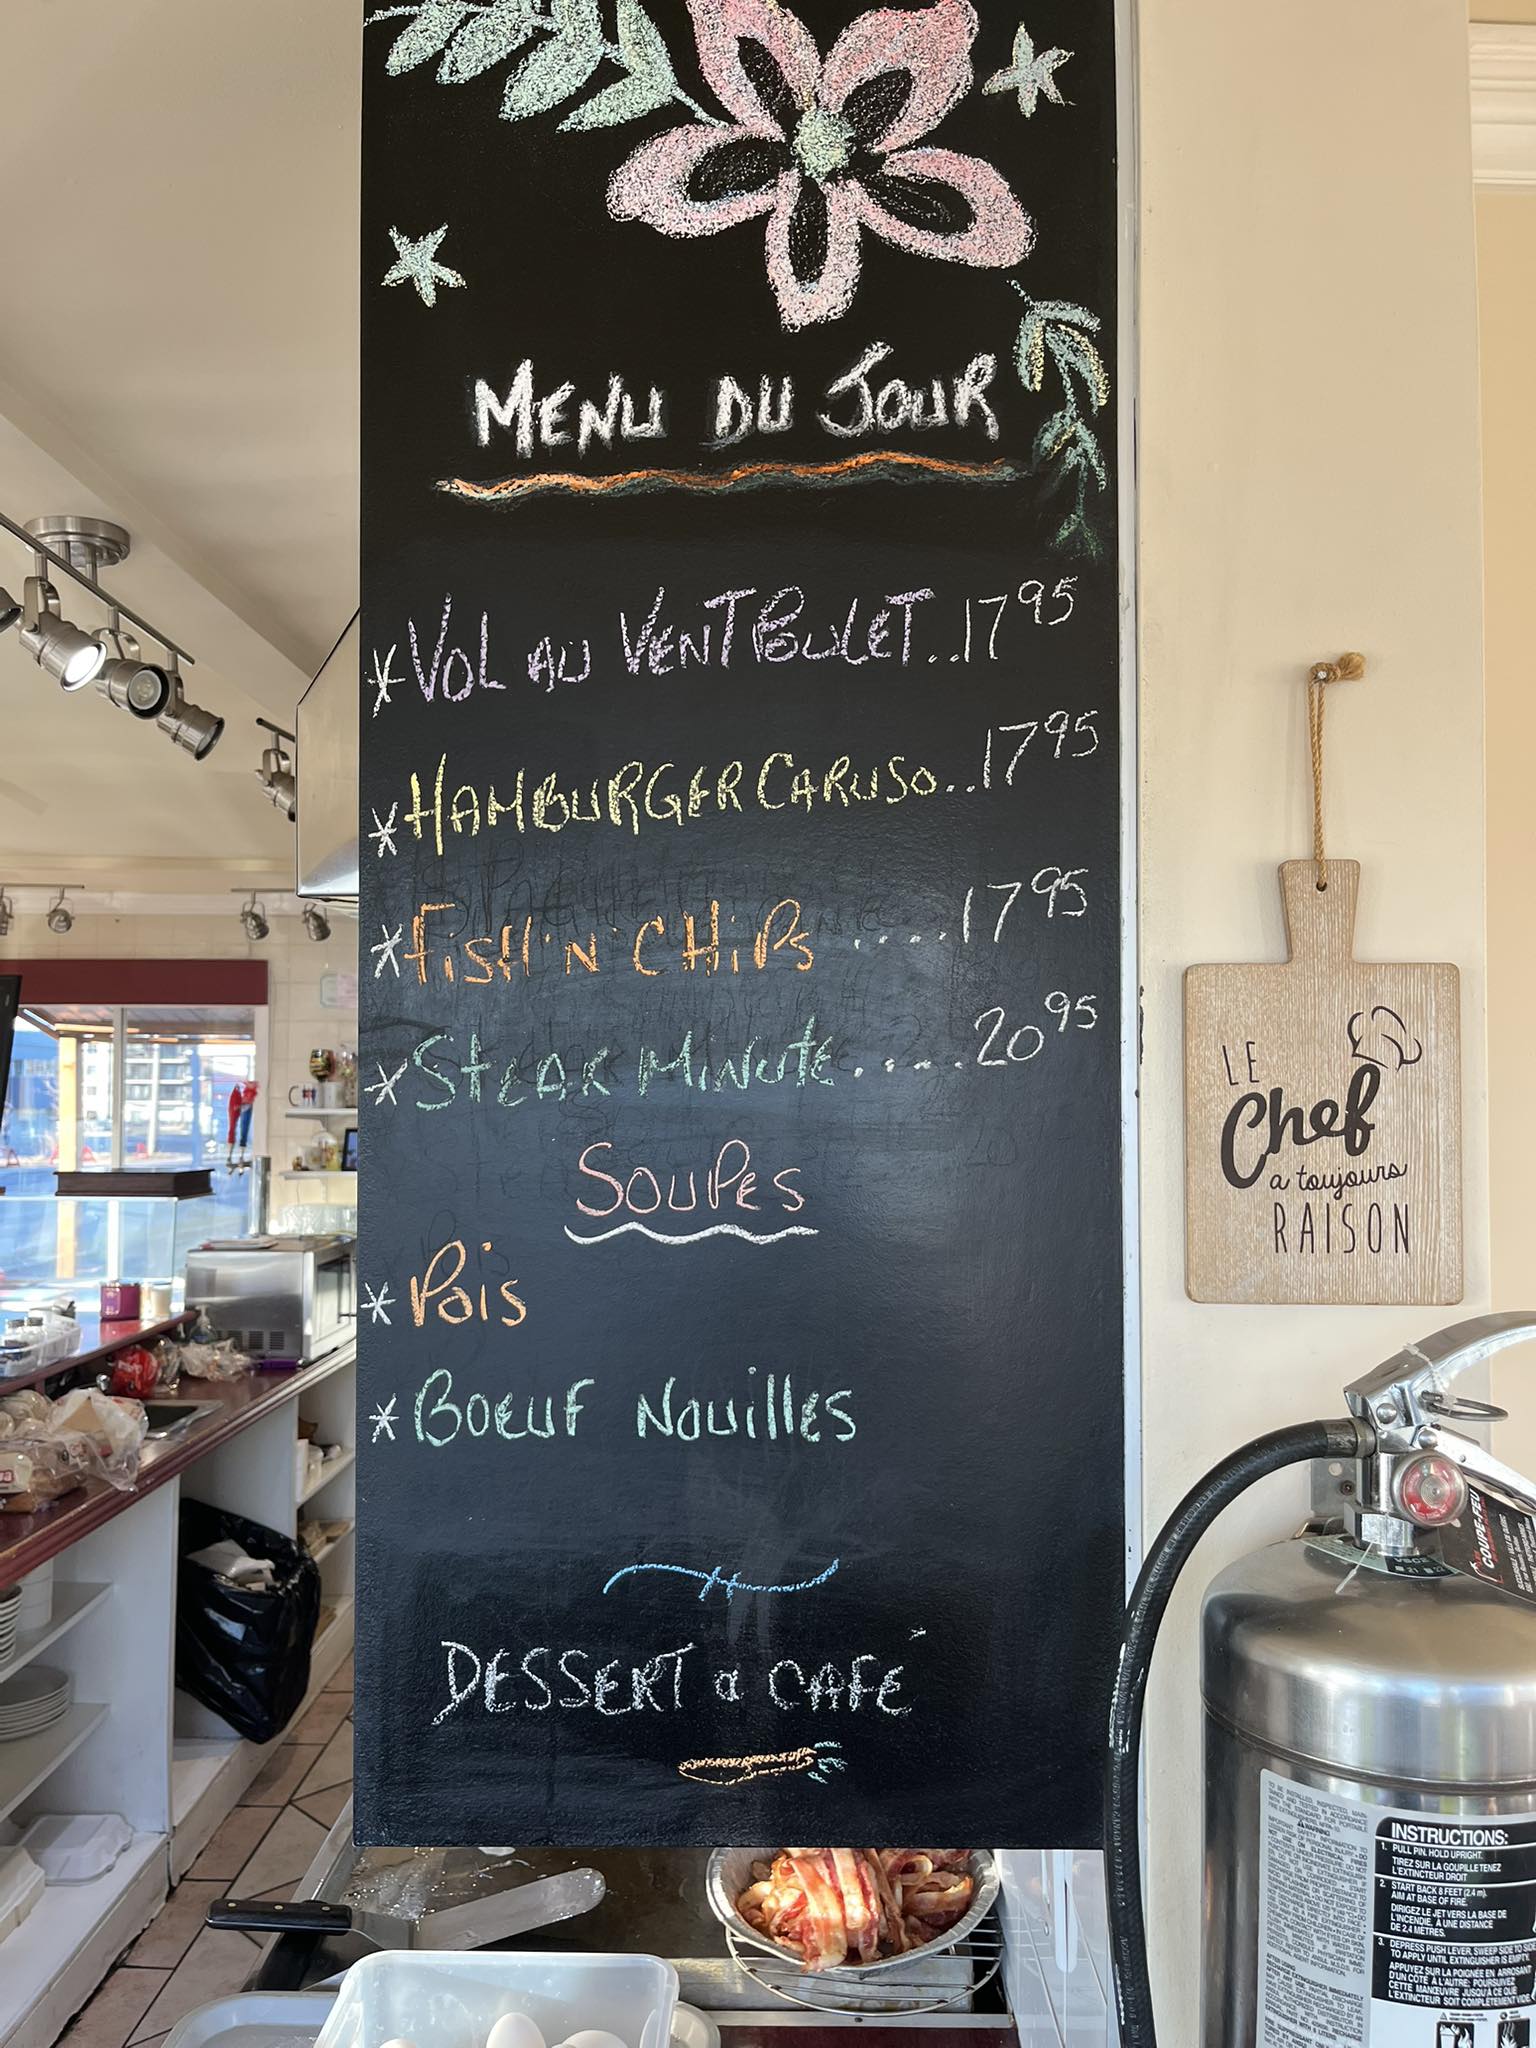 MENU DU JOUR
* VOL AU VENT POULET..17 95
* HAMBURGER CARUSO..17 95
* FISH 'N' CHiPs .....17 95
* STEAK MINUTE.....20 95
SOUPES
* Pois
* BOEUF NOUillES
DESSERT & CAFÉ
LE
Chef
a toujours
RAISON
COUPE-FEU
INSTRUCTIONS:
1. PULL PIN. HOLD UPRIGHT.
TIREZ SUR LA GOUPILLE TENEZ
L'EXTINCTEUR DROIT
2. START BACK 8 FEET (2.4 m).
AIM AT BASE OF FIRE.
DIRIGEZ LE JET VERS LA BASE DE
L'INCENDIE, À UNE DISTANCE
DE 2,4 MÈTRES.
3. DEPRESS PUSH LEVER, SWEEP SIDE TO SIDE
TO APPLY UNTIL EXTINGUISHER IS EMPTY.
APPUYEZ SUR LA POIGNÉE EN ARROSANT
D'UN CÔTÉ À L'AUTRE: POURSUIVEZ
CETTE MANŒUVRE JUSQU'À CE QUE
L'EXTINCTEUR SOIT COMPLÈTEMENT VIDE.